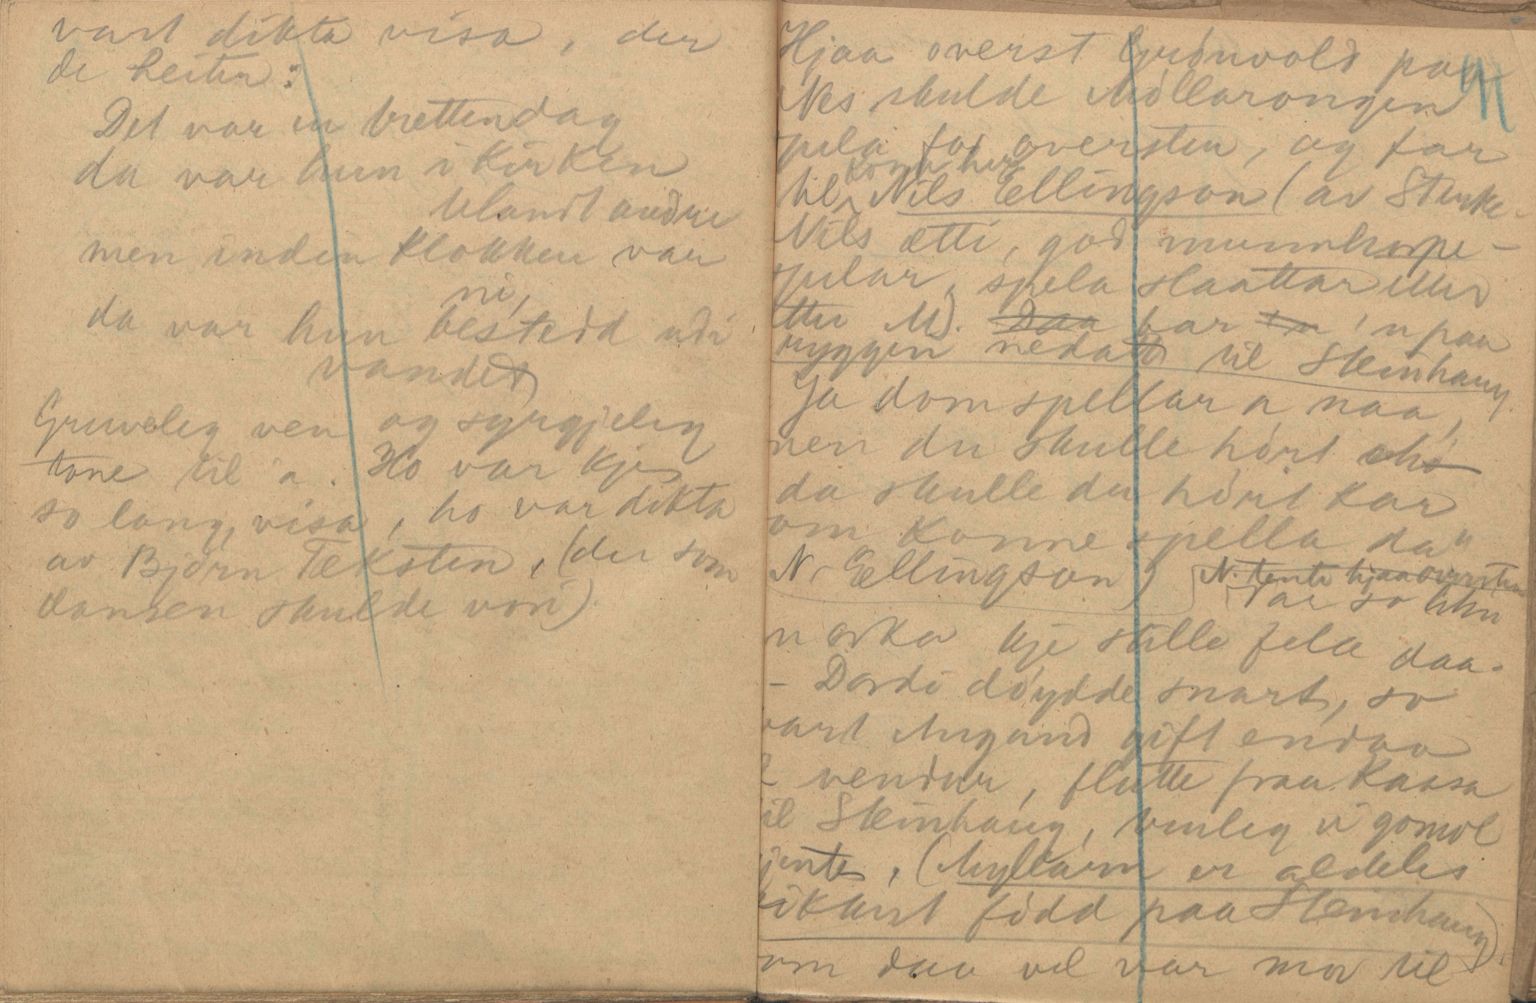 vart dikta visa, der
de heiter:
Det var en brettendag
da var hun i Kirken
blandt andre
men inden Klokken var
ni,
da var hun bestedd udi
vandet
Gruveleg ven og syrgjeleg
tone til 'a. Ho var kje
so lang, visa, ho var dikta
av Björn Teksten, (der som
dansen skulde vori)
Hjaa overst Grönvold paa
Nes skulde Möllarongen
spela for oversten, og far
til Nils Ellingson (av Sterke-
Nils ætti, god munnharpe-
spelar, spela slaattar etter
etter M). Daa bar 'n paa
ryggen nedatt til Steinhaug.
Ja dom spellar n naa,
men du skulle hört
da skulle du hört kar
om konne spella da"
N. Ellingson)
N. tente hjaa oversten
Var so liten
n orka kje stille fela daa.
- Dordi döydde snart, so
vart Augund gift endaa
vendur, flutte fraa Kaasa
til Steinhaug, venleg i gomol
jente, (Myllarn er aldeles
sikkert född paa Steinhaug)
som daa vel var mor til